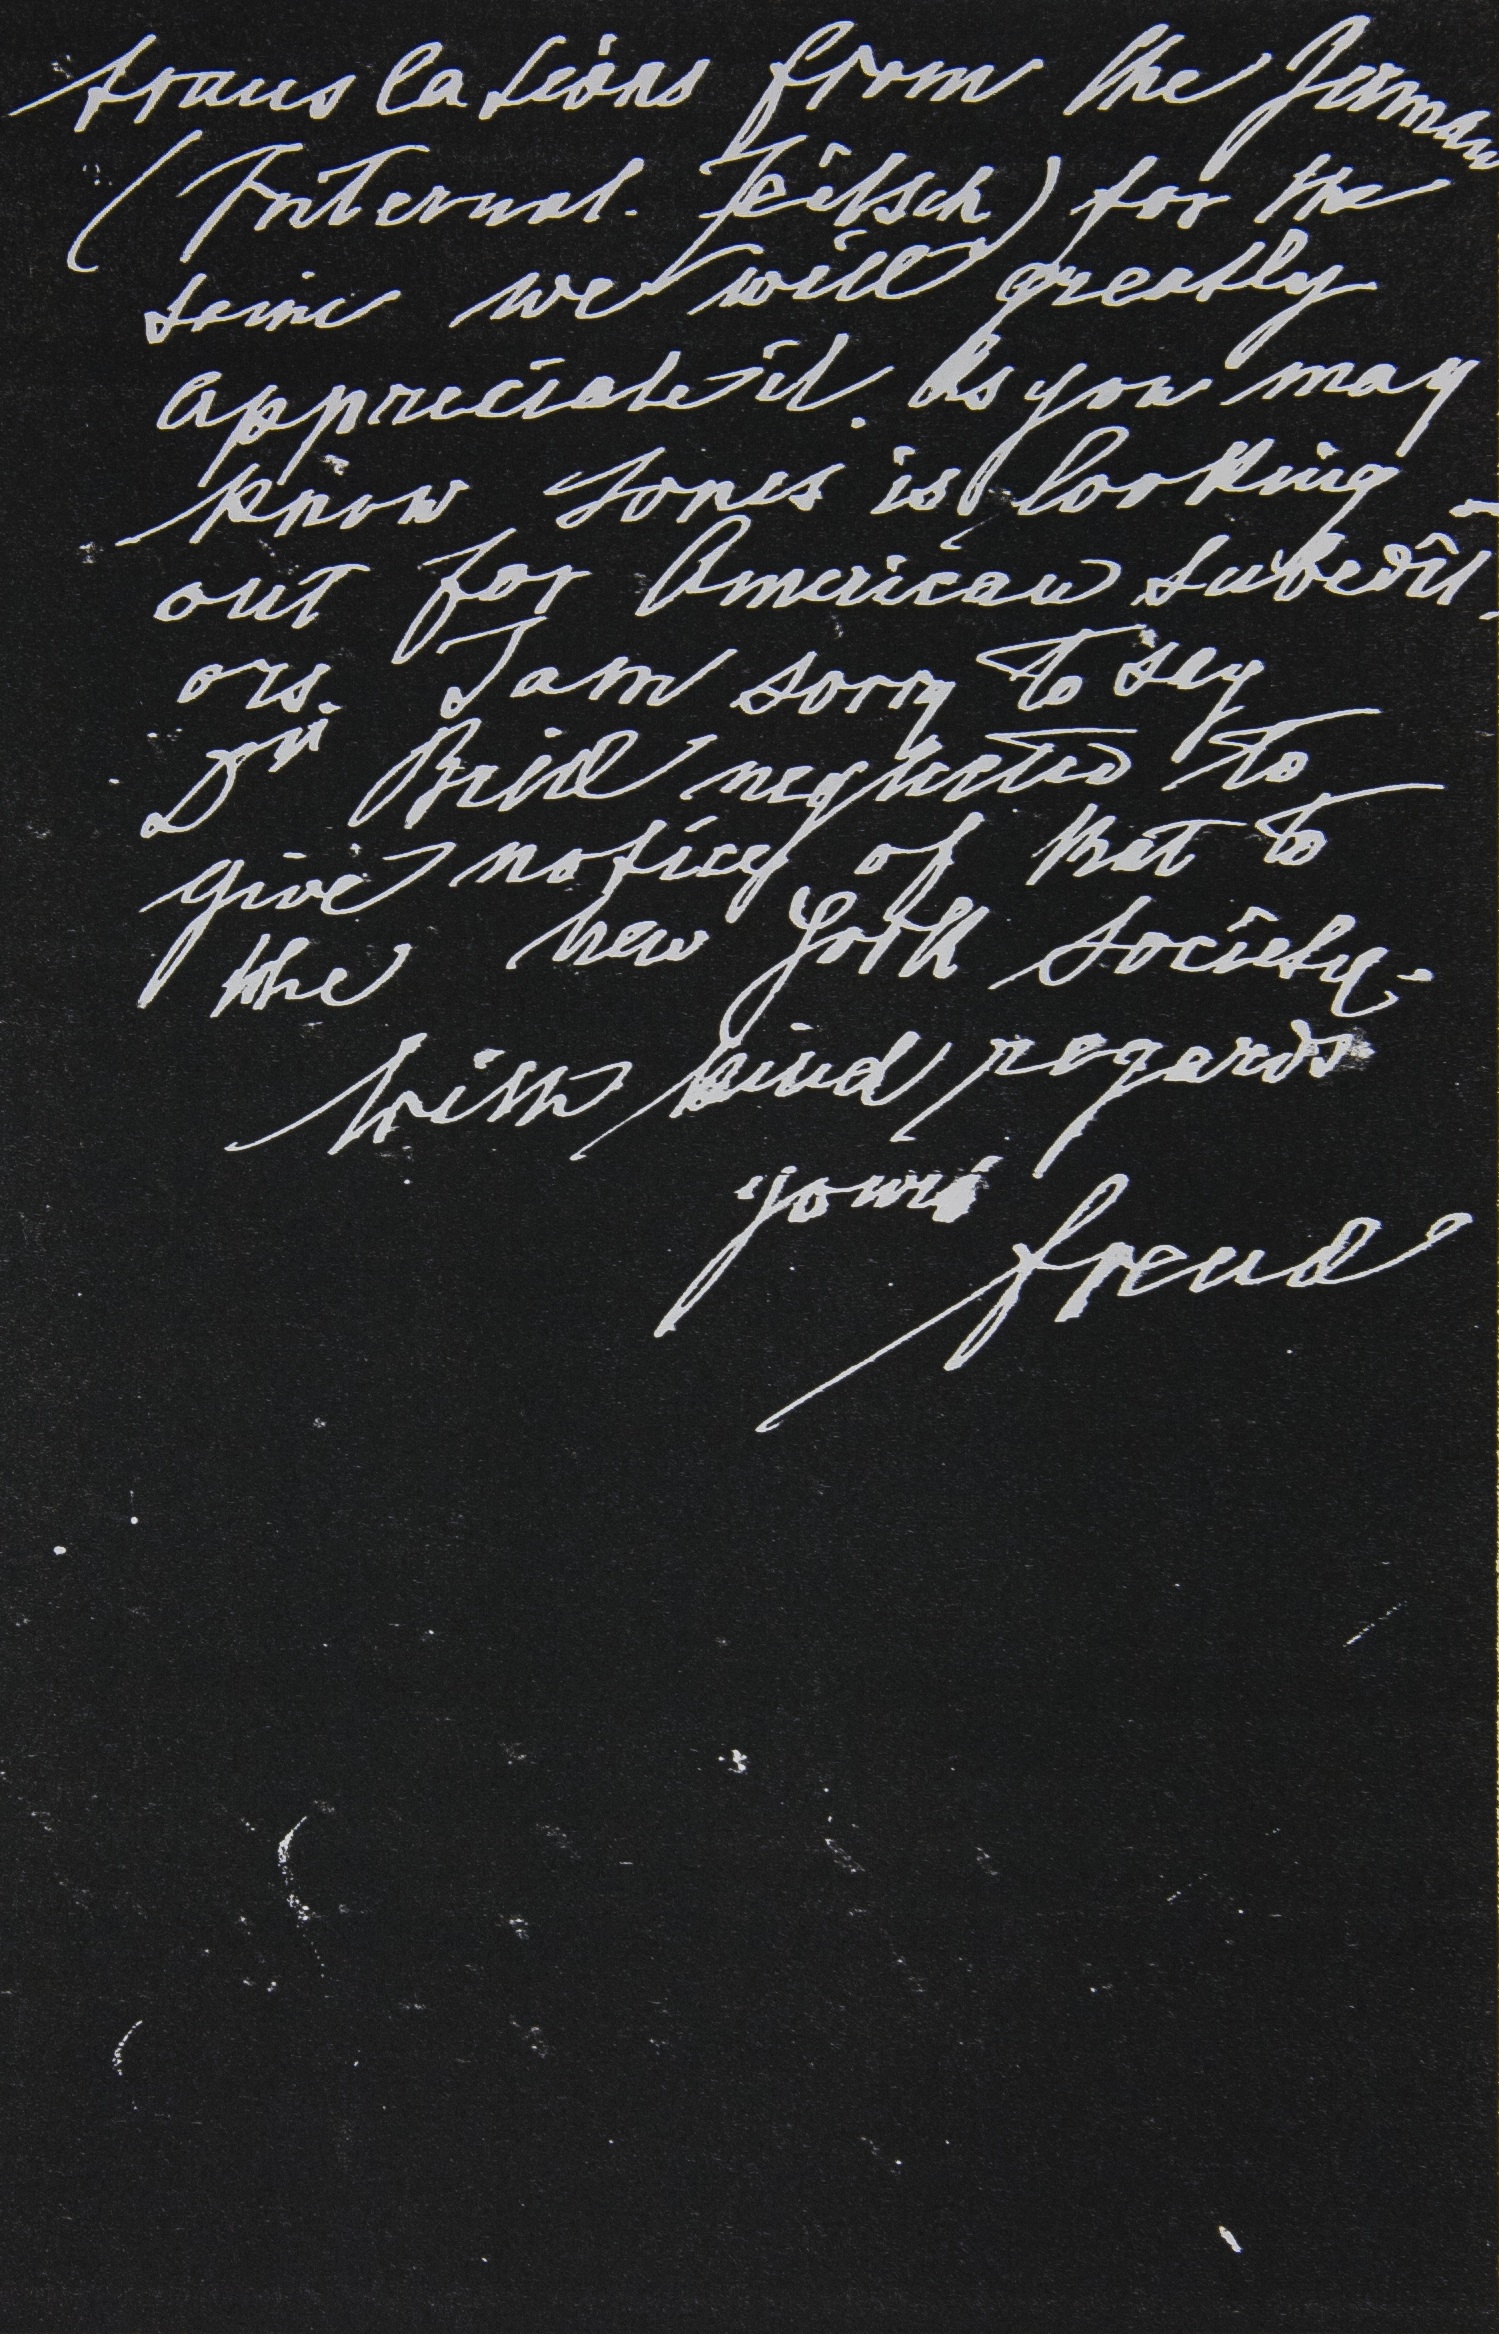 translations from the German
(Internat. Zeitsch) for the
time we will greatly
appreciate it. As you may
know Jones is looking
out for American subedit-
ors. I am sorry to say
Dr Brill neglected to
give notice of that to
the new York Society.
With kind regards
yours
Freud